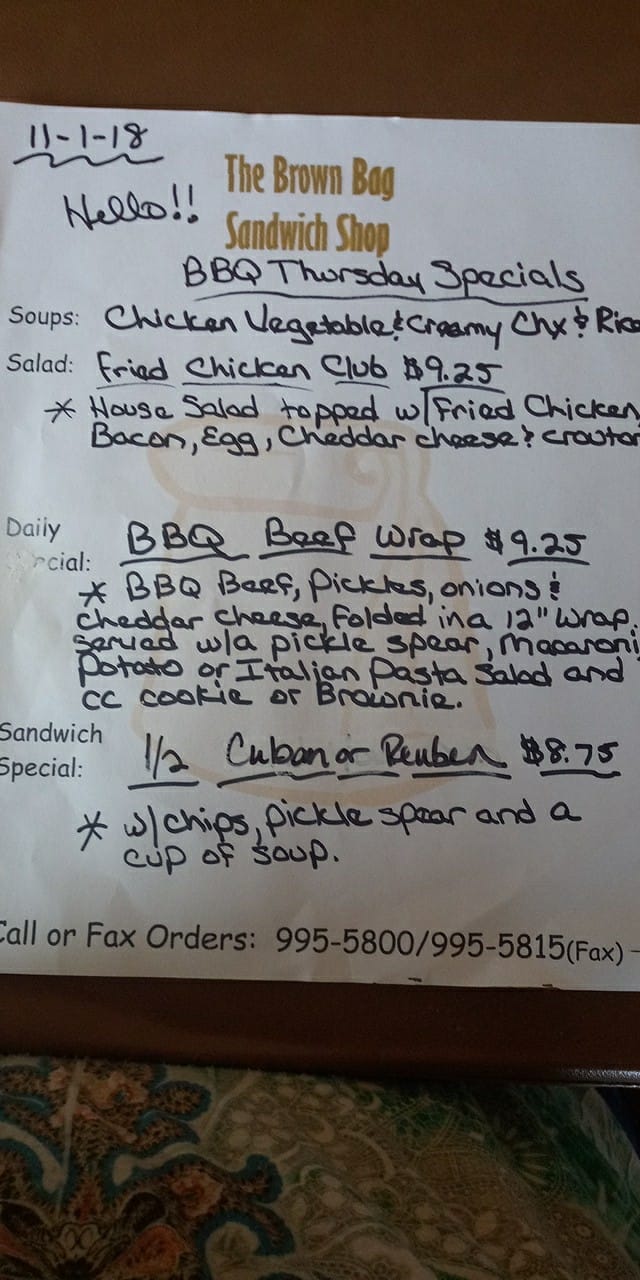 11-1-18
Hello!!
The Brown Bag
Sandwich Shop
BBQ Thursday Specials
Soups: Chicken Vegetable & Creamy Chx & Rice
Salad: Fried Chicken Club $9.25
* House Salad topped w/Fried Chicken,
Bacon, Egg, Cheddar cheese & crouton
Daily BBQ Beef Wrap $9.25
cial:
* BBQ Beef, pickles, onions &
cheddar cheese, folded in a 12" wrap.
served w/a pickle spear, Macaroni,
Potato or Italian Pasta Salad and
CC cookie or Brownie.
Sandwich
Special: 1/2 Cuban or Reuben $8.75
* w/chips, pickle spear and a
cup of soup.
Call or Fax Orders: 995-5800/995-5815(Fax) -